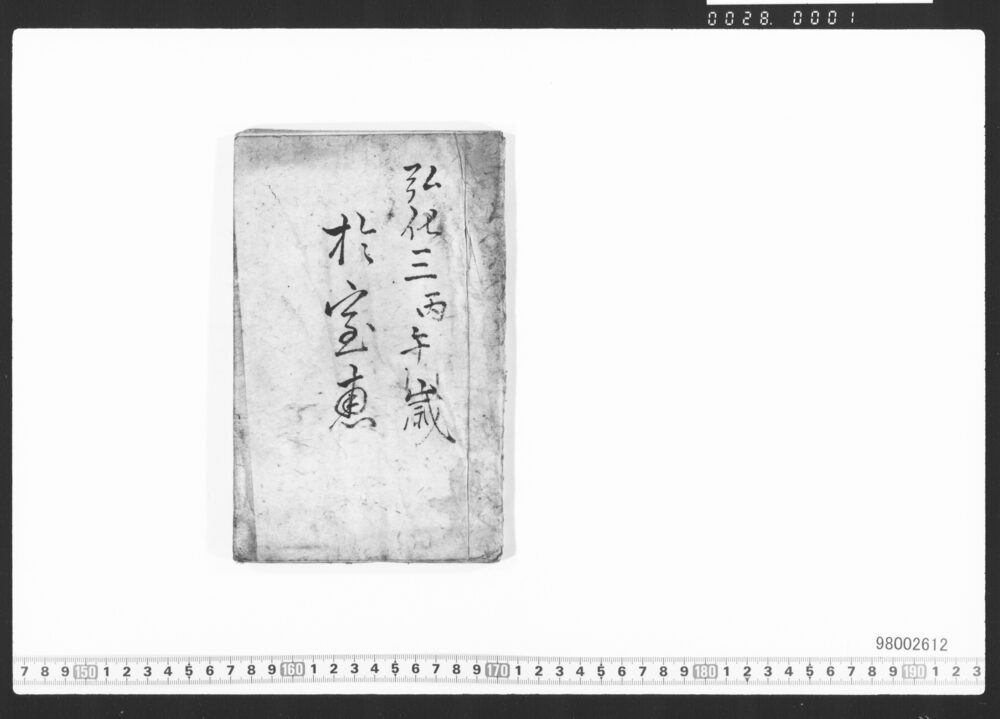 0028. 0001
弘化三丙午歳
於室恵
98002612
7 8 9 150 1 2 3 4 5 6 7 8 9 160 1 2 3 4 5 6 7 8 9 170 1 2 3 4 5 6 7 8 9 180 1 2 3 4 5 6 7 8 9 190 1 2 3